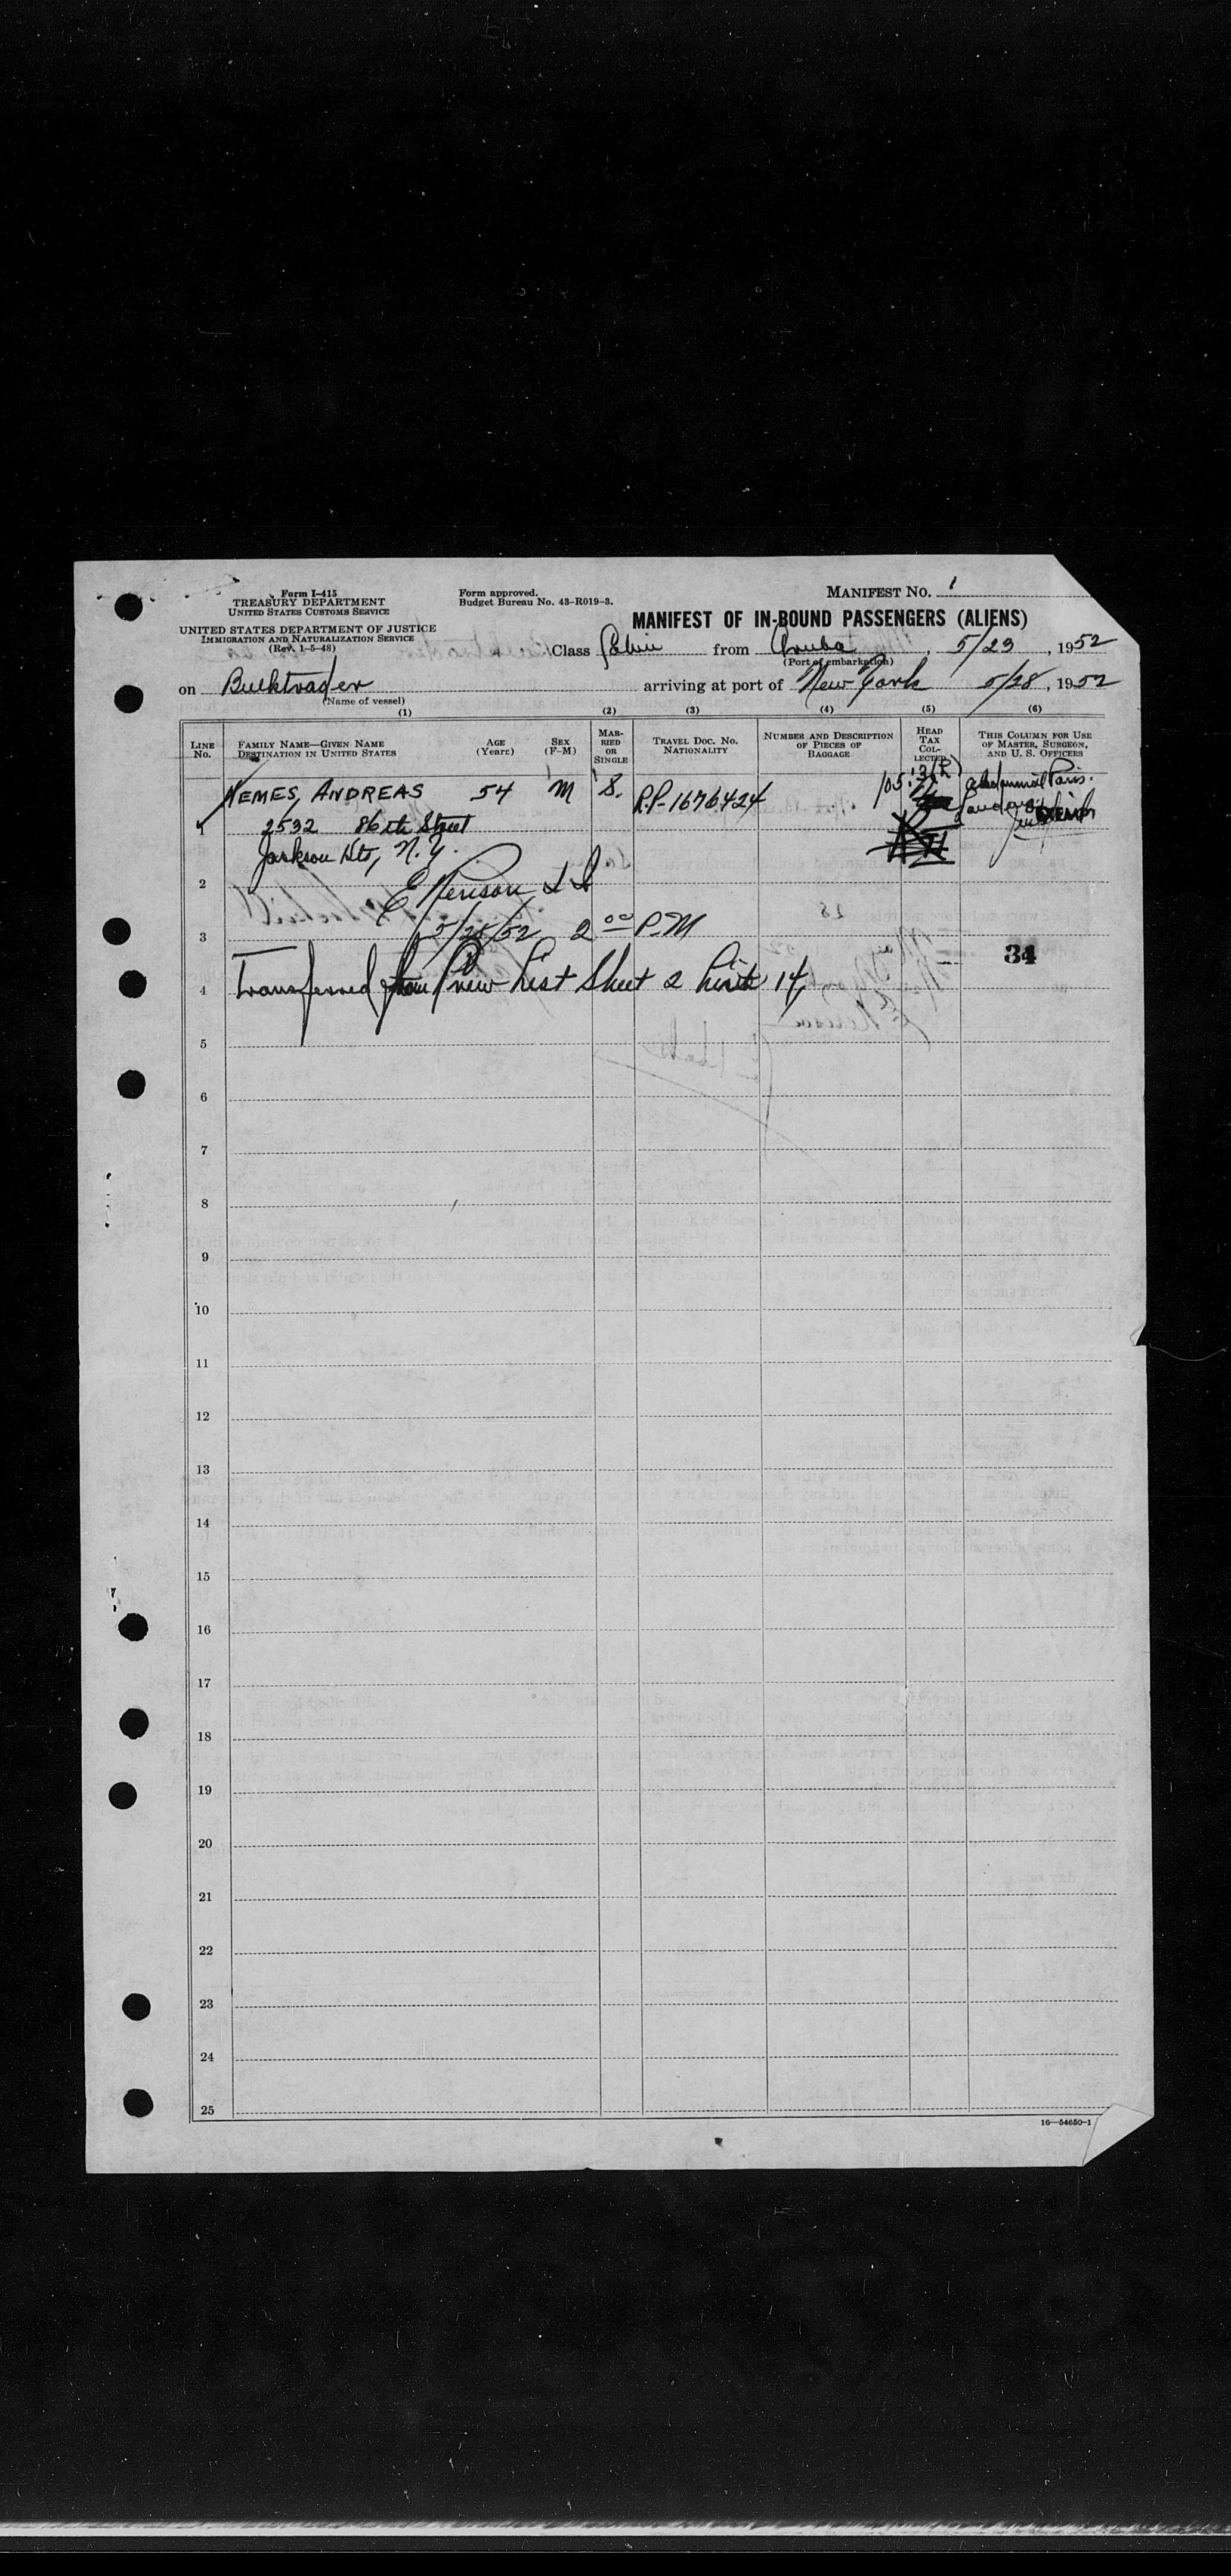 Form I-415
TREASURY DEPARTMENT
UNITED STATES CUSTOMS SERVICE
UNITED STATES DEPARTMENT OF JUSTICE
IMMIGRATION AND NATURALIZATION SERVICE
(Rev. 1-5-48)
Form approved.
Budget Bureau No. 43-R019-3.
MANIFEST No. 1
MANIFEST OF IN-BOUND PASSENGERS (ALIENS)
Class Cabin from Aruba, 5/23, 1952
(Port of embarkation)
on Bulktrader arriving at port of New York 5/28, 1952
(Name of vessel)
(1) (2) (3) (4) (5) (6)
LINE No.
FAMILY NAME—GIVEN NAME
DESTINATION IN UNITED STATES
AGE (Years)
SEX (F-M)
MARRIED OR SINGLE
TRAVEL DOC. NO. NATIONALITY
NUMBER AND DESCRIPTION OF PIECES OF BAGGAGE
HEAD TAX COLLECTED
THIS COLUMN FOR USE OF MASTER, SURGEON, AND U. S. OFFICERS
1 NEMES, ANDREAS 54 M S. R.P-1676424 105.3(b)
2532 86th Street
Jackson Hts, N.Y.
2
3 5/28/52 2 00 P-M
34
4 Transferred from Crew List Sheet 2 Line 14
5
6
7
8
9
10
11
12
13
14
15
16
17
18
19
20
21
22
23
24
25
16—54650-1